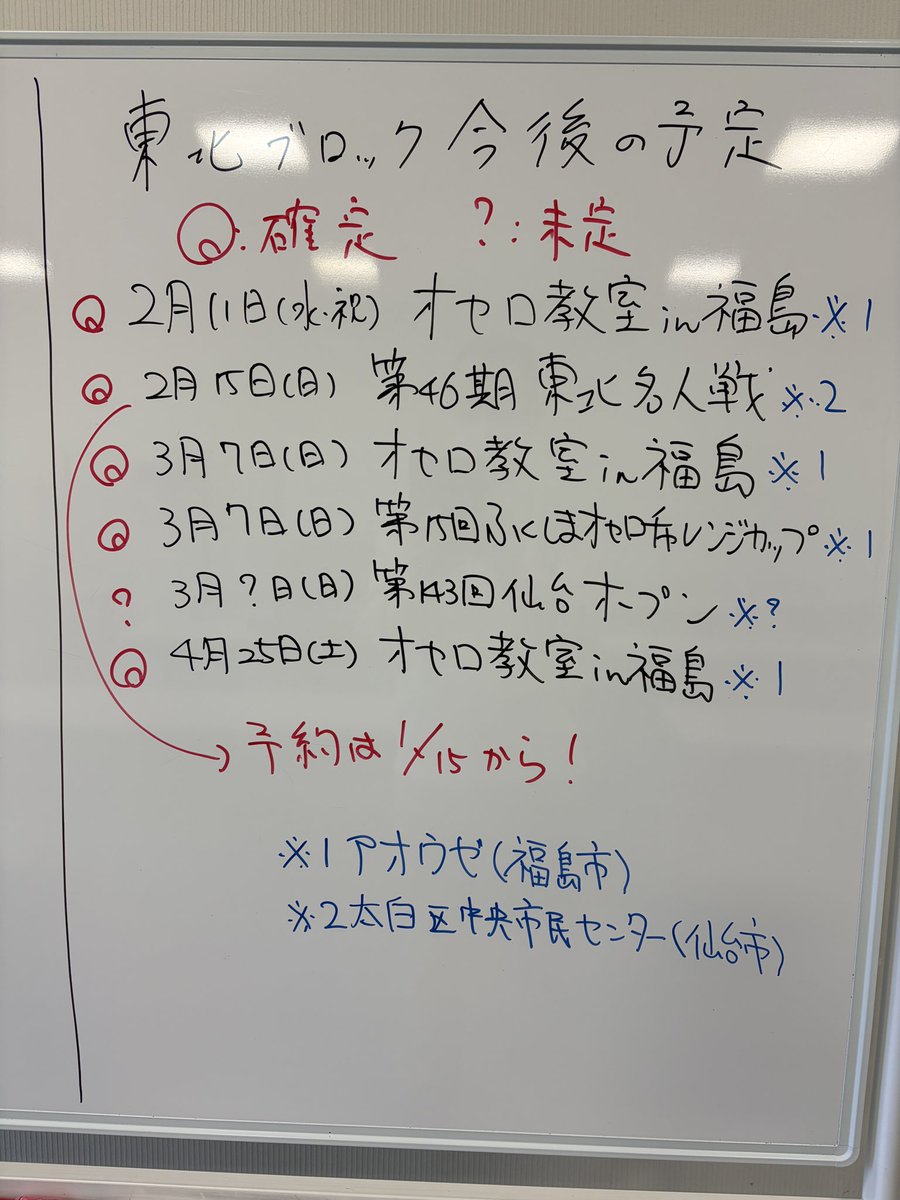 東北ブロック今後の予定
◎:確定 ?:未定
◎2月11日(水・祝) オセロ教室in福島※1
◎2月15日(日) 第46期東北名人戦※2
◎3月7日(日) オセロ教室in福島※1
◎3月7日(日) 第15回ふくしまオセロチャレンジカップ※1
? 3月?日(日) 第143回仙台オープン※?
◎4月25日(土) オセロ教室in福島※1
→予約は1/15から!
※1アオウゼ(福島市)
※2太白区中央市民センター(仙台市)